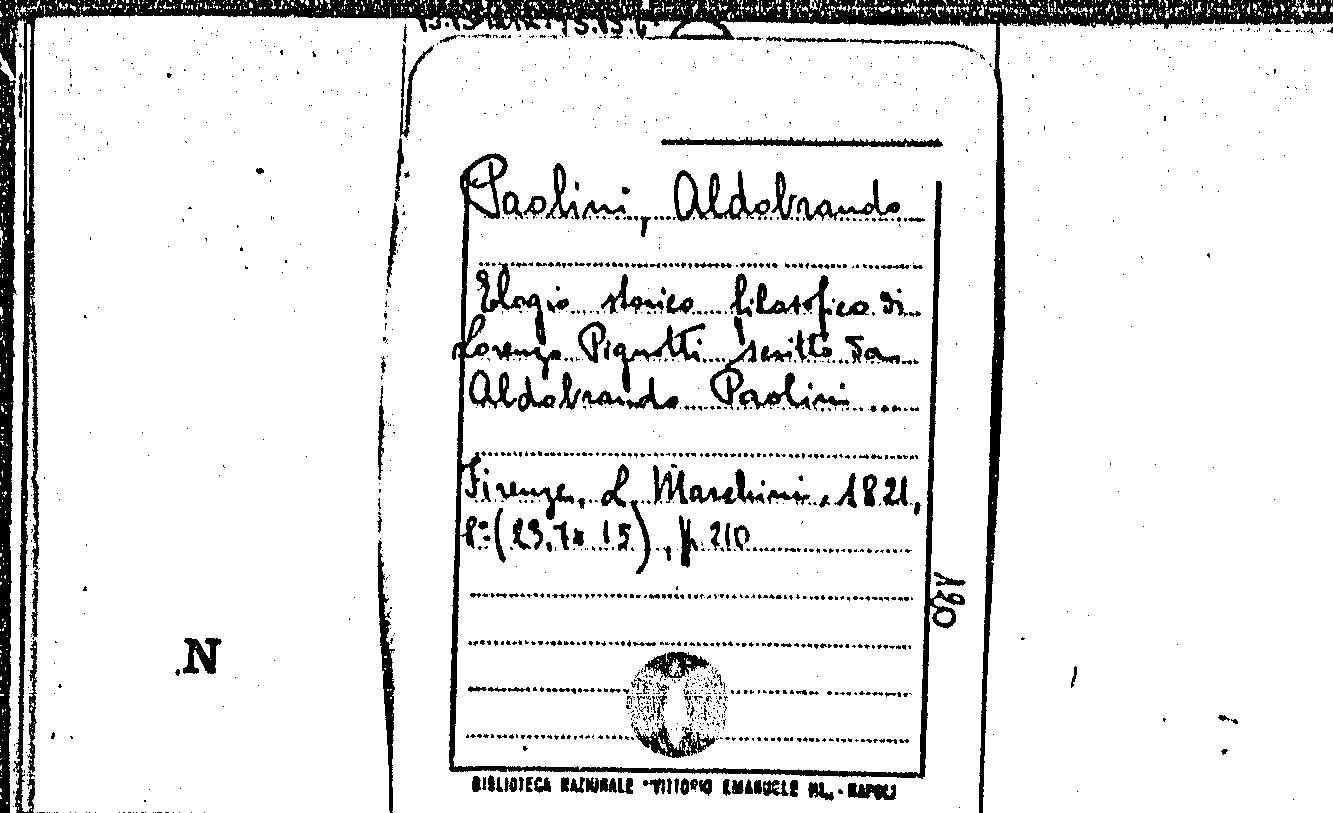 Paolini, Aldobrando
Elogio storico filosofico di
Lorenzo Pignotti scritto da
Aldobrando Paolini ....
Firenze, L. Marchini, 1821,
8º (23,7x 15), p. 210
120
N
BIBLIOTECA NAZIONALE "VITTORIO EMANUELE III" - NAPOLI